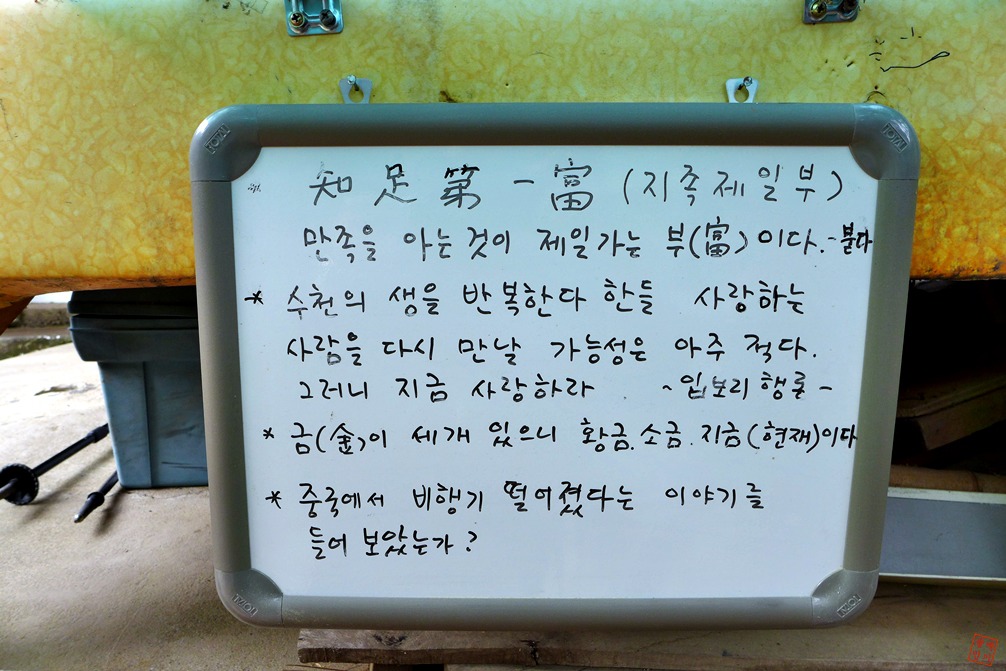 知足第一富 (지족제일부)
만족을 아는것이 제일가는 부(富)이다.-붇다
* 수천의 생을 반복한다 한들 사랑하는
사람을 다시 만날 가능성은 아주 적다.
그러니 지금 사랑하라 ~입보리행론-
* 금(金)이 세개 있으니 황금.소금.지금(현재)이다
* 중국에서 비행기 떨어졌다는 이야기를
들어 보았는가?